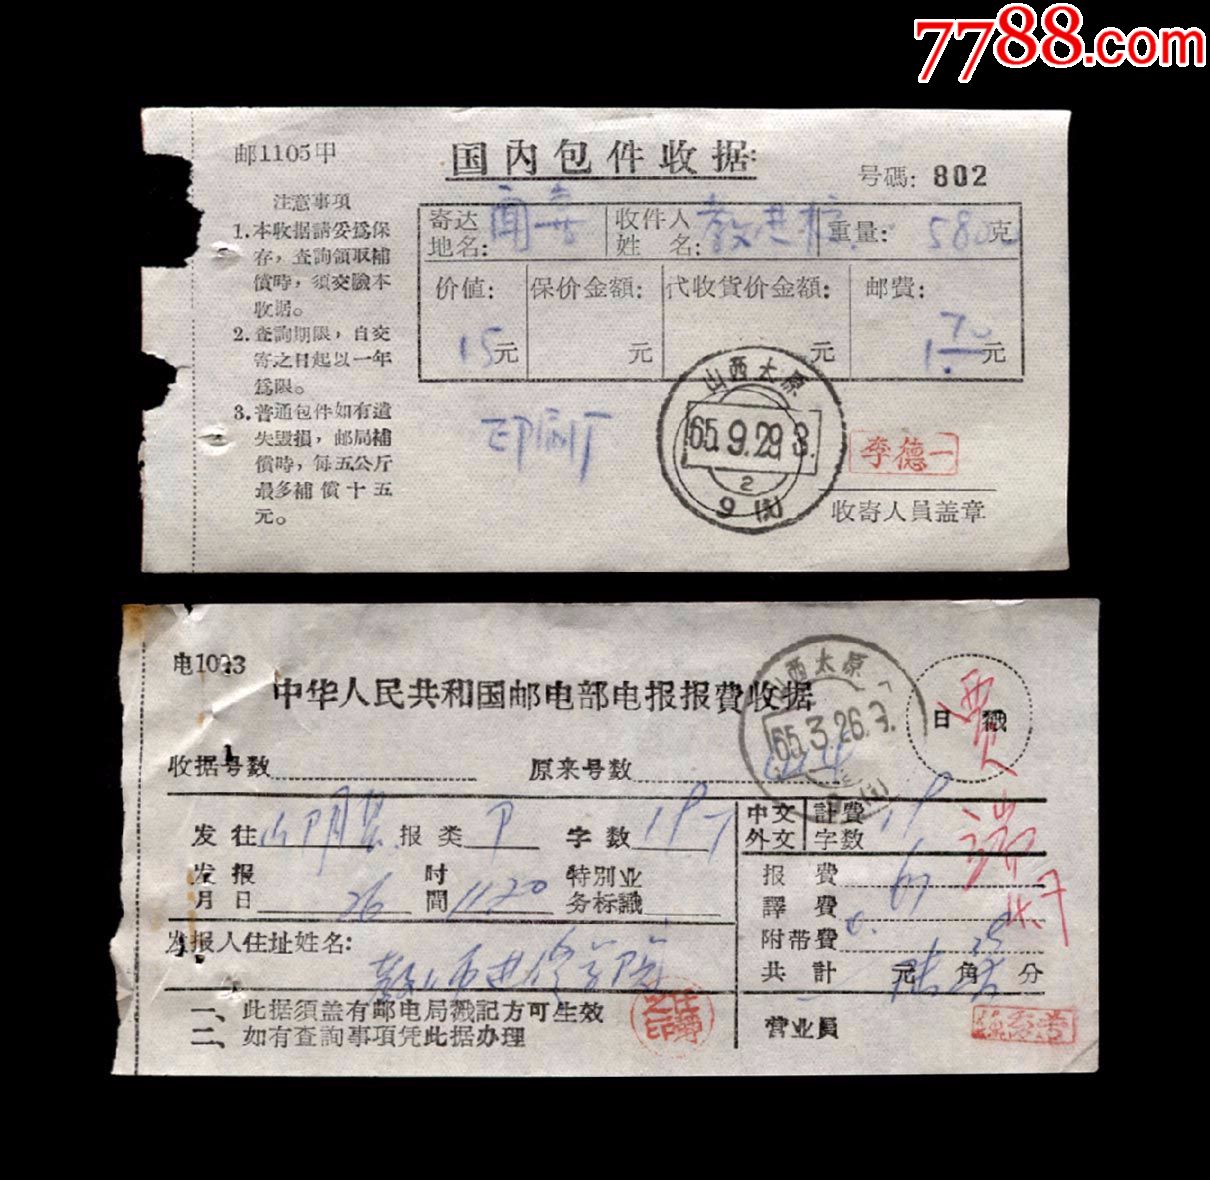 7788.com
邮1105甲
国内包件收据
号碼: 802
注意事项
1.本收据請妥爲保存，查詢領取補償時，須交驗本收据。
2.查詢期限，自交寄之日起以一年爲限。
3.普通包件如有遺失毀損，邮局補償時，每五公斤最多補償十五元。
寄达地名: 闻喜 收件人姓名: 重量: 5800克
价值: 15元
保价金額: 元
代收貨价金額: 元
邮費: 1.70元
印刷厂
山西太原
65.9.29
2
9
李德一
收寄人員盖章
电1093
中华人民共和国邮电部电报报費收据
山西太原
65.3.26
日戳
收据号数
原来号数
发往 报类 字数
中文 計費
外文 字数
发报月日 26 时間 1120 特別业务标識
报費
譯費
附带費
共計 元 角 分
发报人住址姓名:
一、此据须盖有邮电局戳記方可生效
二、如有查詢事項凭此据办理
营业員